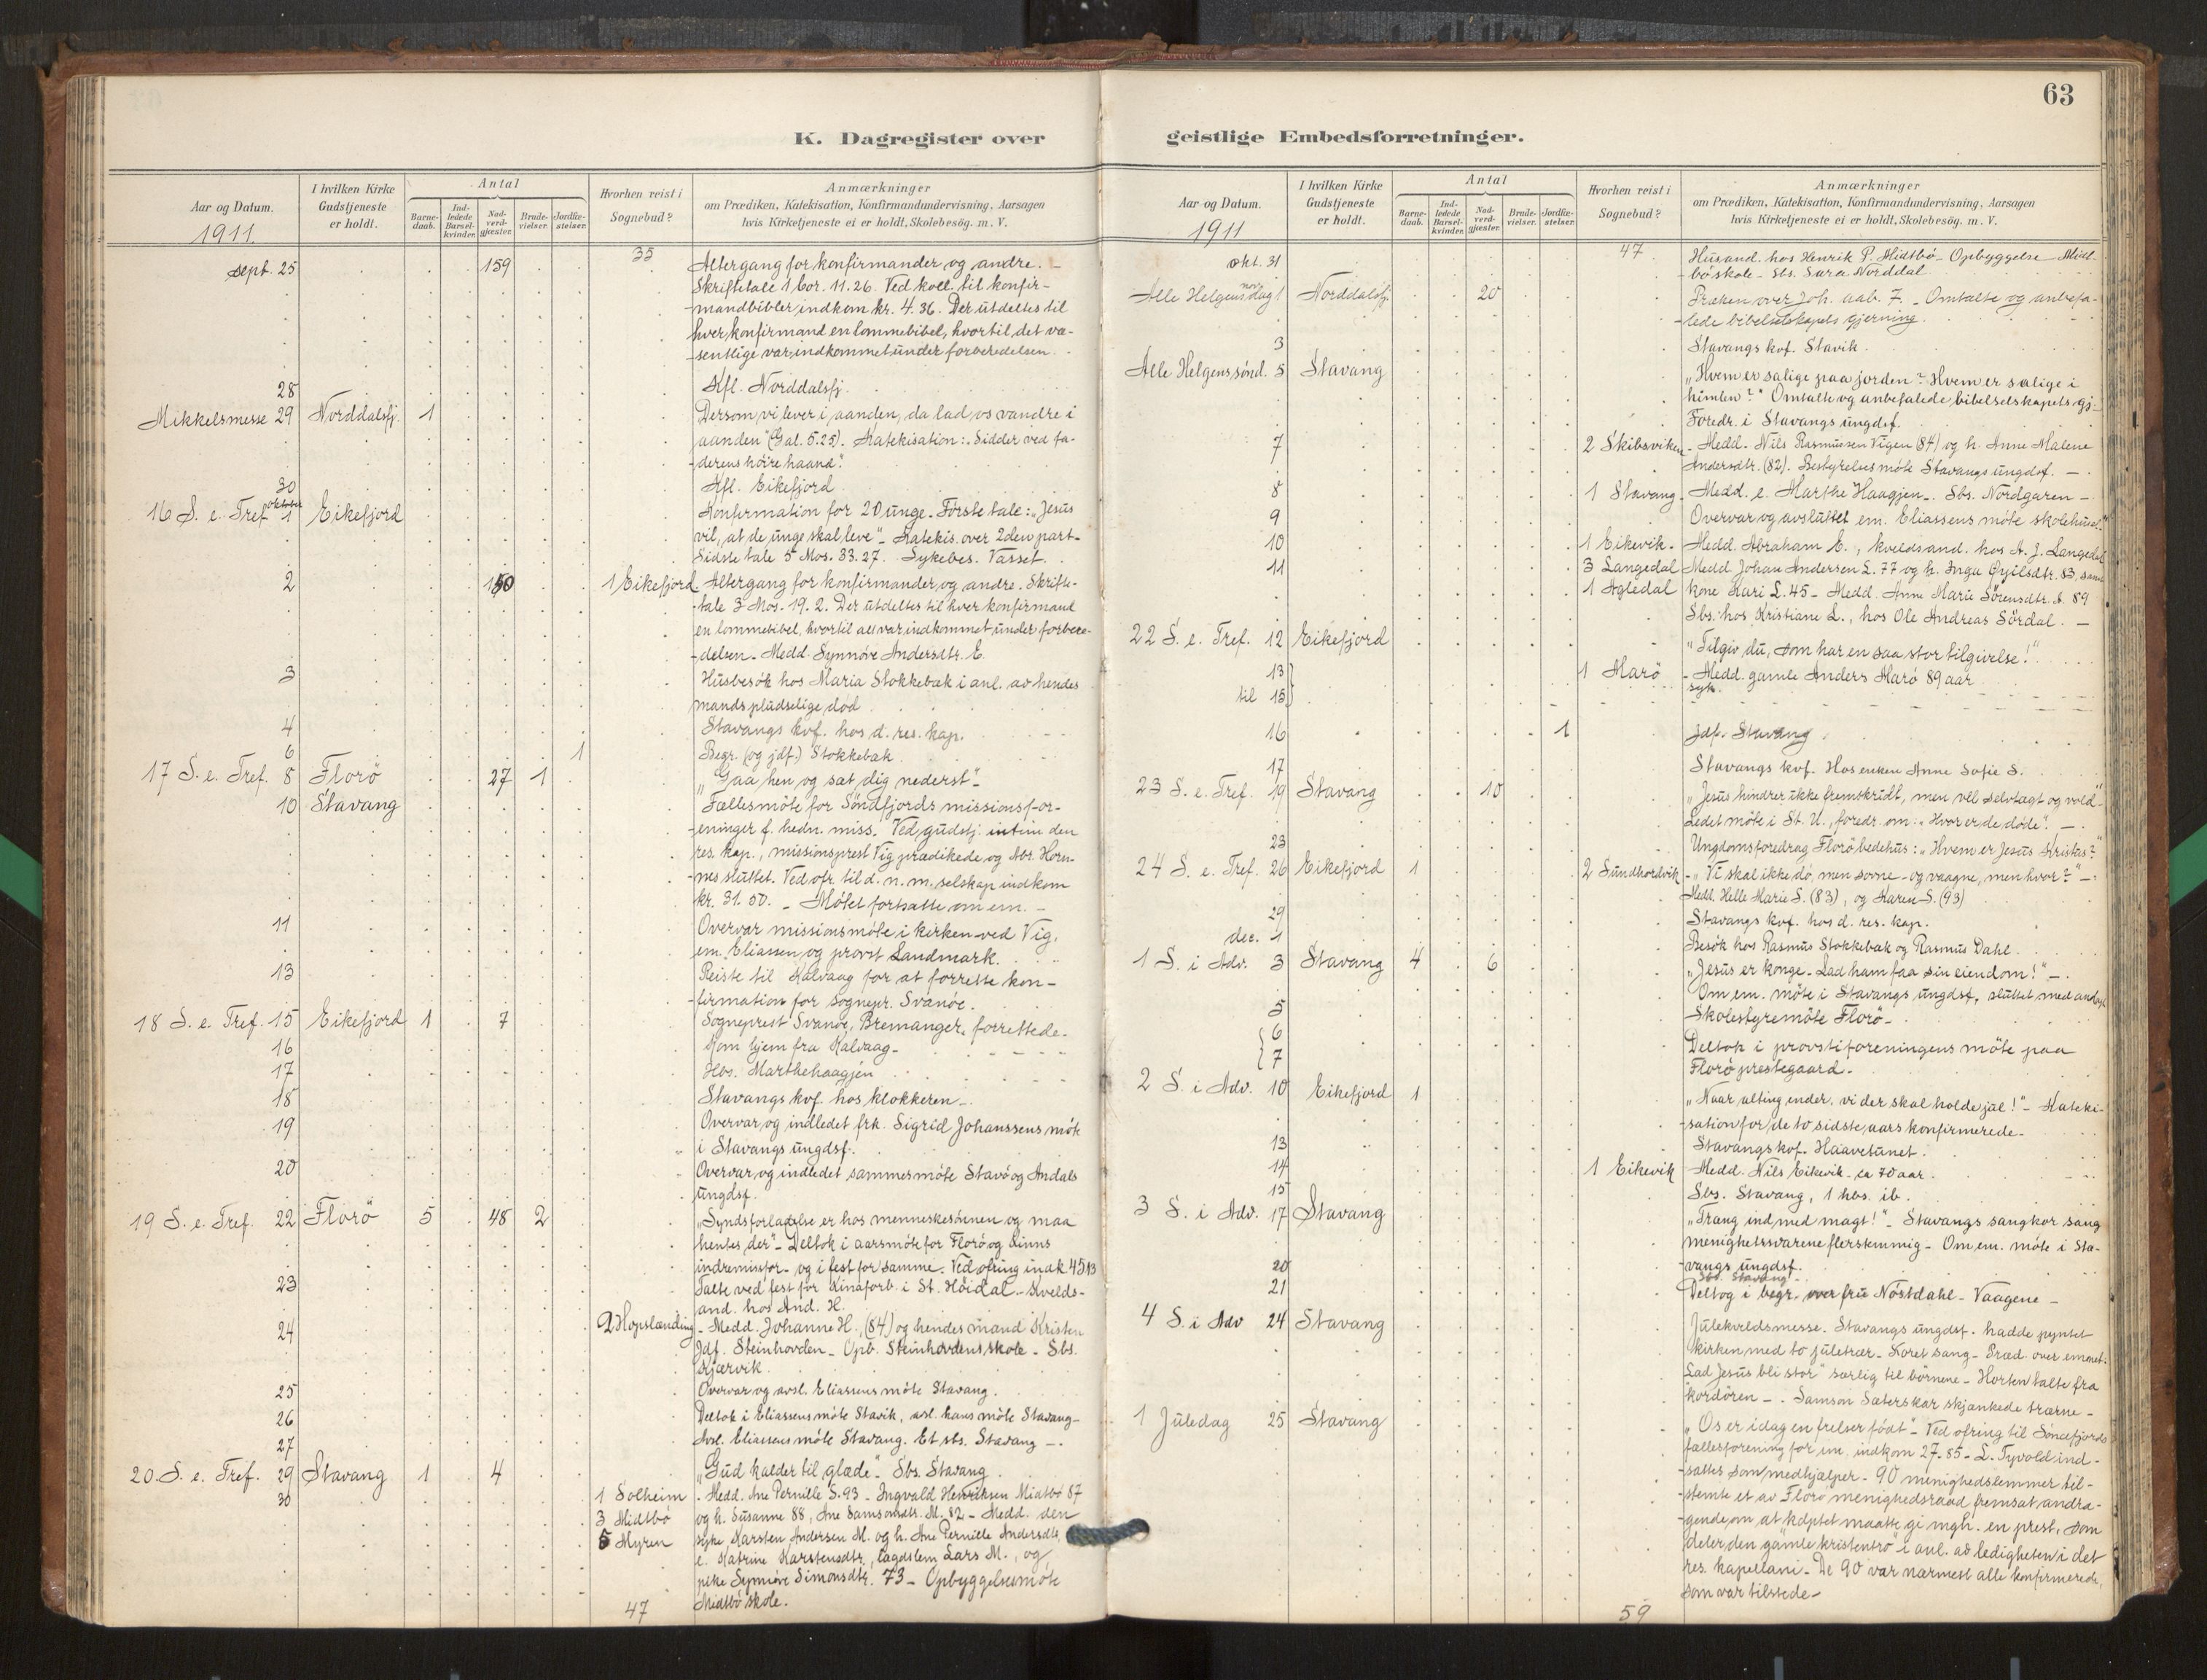 63
K. Dagregister over geistlige Embedsforretninger.
Aar og Datum.
1911.
I hvilken Kirke Gudstjeneste er holdt.
Antal
Barne-daab.
Ind-ledede Barsel-kvinder.
Nad-verd-gjæster.
Brude-vielser.
Jordfæ-stelser.
Hvorhen reist i Sognebud?
Anmærkninger
om Prædiken, Katekisation, Konfirmandundervisning, Aarsagen
hvis Kirketjeneste ei er holdt, Skolebesög. m. V.
35
sept. 25 159 Altergang for konfirmander og andre. -
Skriftetale 1 Cor. 11.26. Ved koll. til konfir-
-mandbibler indkom kr. 4.36. Der utdeltes til
hver konfirmand en lommebibel, hvortil det væ-
-sentlige var indkommet under forberedelsen.
28 Kfl. Norddalsfj.
Mikkelsmesse 29 Norddalsfj. 1 Dersom vi lever i aanden, da lad os vandre i
aanden" (Gal. 5.25). Katekisation: "Sidder ved fa-
-derens höire haand".
30 Kfl. Eikefjord
16 S. e. Tref. oktober 1 Eikefjord Konfirmation for 20 unge. Förste tale: "Jesus
vil, at de unge skal leve" - Katekis. over 2den part -
Sidste tale 5 Mos. 33.27. Sykebes. Vasset.
2 150 1 Eikefjord Altergang for konfirmander og andre. Skrifte-
-tale 3 Mos. 19.2. Der utdeltes til hver konfirmand
en lommebibel, hvortil alt var indkommet under forbere-
-delsen - Medd. Synnöve Andersdtr. E.
3 Husbesök hos Maria Stokkebæk i anl. av hendes
mands pludselige död
4 Stavangs kvf. hos d. res. kap.
6 1 Begr. (og jdf.) Stokkebak
17 S. e. Tref. 8 Florö 27 1 "Gaa hen og sæt dig nederst" -
10 Stavang Fællesmöte for Söndfjords missionsfor-
-eninger f. hedn. miss. Ved gudstj. intim den
res. kap., missionsprest Vig prædikede og Abr. Horn-
-nes sluttet. Ved ofr. til d. n. m. selskap indkom
kr. 31.50. - Mötet fortsatte om em. -
11 Overvar missionsmöte i kirken ved Vig,
em. Eliassen og provst Landmark.
13 Reiste til Kalvaag for at forrette kon-
-firmation for sognepr. Svanöe.
18 S. e. Tref. 15 Eikefjord 1 7 Sogneprest Svanöe, Bremanger, forrettede.
16 Kom hjem fra Kalvaag -
17 Hbs. Marthehaagjen
18 Stavangs kvf. hos klokkeren -
19 Overvar og indledet frk. Sigrid Johanssens möte
i Stavangs ungdsf.
20 Overvar og indledet sammes möte Stavö og Andals
ungdsf.
19 S. e. Tref. 22 Florö 5 48 2 "Syndsforladelse er hos menneskesönnen og maa
hentes der" - Deltok i aarsmöte for Florö og Kinns
indremisfor. - og i fest for samme. Ved ofring indk 45.13
23 Talte ved fest for Kinaforb. i St. Höidal. - Kvelds-
and. hos And. H.
24 2 Hopslanding - Medd. Johanne H. (84) og hendes mand Kristen
Jdf. Steinhovden - Opb. Steinhovdens skole - Sbs.
Kjærvik
25 Overvar og avsl. Eliassens möte Stavang.
26 Deltok i Eliassens möte Stavik, avsl. hans möte Stavang -
27 Avsl. Eliassens möte Stavang. Et sbs. Stavang -
20. S. e. Tref. 29 Stavang 1 4 "Gud kalder til glæde". Sbs. Stavang
30 1 Solheim - Medd. Ane Pernille S. 93 - Ingvald Henriksen Midtbö 87
3 Midtbö og h. Susanne 88, Ane Samsonsdtr. M. 82 - Medd. den
5 Myren syke Karsten Andersen M. og h. Ane Pernille Andersdtr.
e. Katrine Karstensdtr., lægdslem Lars M., og
pike Synnöve Simonsdtr. 73 - Opbyggelsesmöte
Midtbö skole.
47
Aar og Datum.
1911
I hvilken Kirke Gudstjeneste er holdt.
Antal
Barne-daab.
Ind-ledede Barsel-kvinder.
Nad-verd-gjæster.
Brude-vielser.
Jordfæ-stelser.
Hvorhen reist i Sognebud?
Anmærkninger
om Prædiken, Katekisation, Konfirmandundervisning, Aarsagen
hvis Kirketjeneste ei er holdt, Skolebesög. m. V.
47
okt. 31 Husand. hos Henrik P. Midtbö - Opbyggelse Midt-
bö skole - Sbs. Sara Norddal
Alle Helgensdag nov. 1 Norddalsfj. 20 Præken over Joh. aab. 7. - Omtalte og anbefa-
-lede bibelselskapets gjerning.
3 Stavangs kvf. Stavik.
Alle Helgens sönd. 5 Stavang "Hvem er salige paa jorden? Hvem er salige i
himlen?" Omtalte og anbefalede bibelselskapets gj.-
Foredr. i Stavangs ungdsf.
7 2 Skibsviken - Medd. Nils Rasmusen Vigen (84) og h. Anne Malene
Andersdtr. (82). Bestyrelsesmöte Stavangs ungdsf. -
8 1 Stavang - Medd. e. Marthe Haagjen - Sbs. Nordgaren -
9 Overvar og avsluttet em. Eliassens möte skolehuset
10 1 Eikevik - Medd. Abraham E., kveldsand. hos A. J. Langedal
11 3 Langedal Medd Johan Andersen L. 77 og h. Inga 83, samt
1 Agledal kone Kari L. 45 - Medd. Anne Marie Sörensdtr. A. 89
Sbs. hos Kristiane L., hos Ole Andreas Sördal. -
22 S. e. Tref. 12 Eikefjord "Tilgiv du, som har en saa stor tilgivelse!"
13 til 15 1 Marö - Medd. gamle Anders Marö 89 aar
syk.
16 1 Jdf. Stavang
17 Stavangs kvf. Hos enken Anne Sofie S.
23 S. e. Tref. 19 Stavang 10 "Jesus hindrer ikke fremskridt, men vel selvtægt og vold"
Ledet möte i St. U., foredr. om: "Hvor er de döde". -
23 Ungdomsforedrag Florö bedehus: "Hvem er Jesus Kristus?"
24 S. e. Tref. 26 Eikefjord 1 2 Sundhordvik - "Vi skal ikke dö, men sovne - og vaagne, men hvor?" -
Medd. Helle Marie S. (83), og Karen S. (93)
29 Stavangs kvf. hos d. res. kap.
dec. 1 Besök hos Rasmus Stokkebak og Rasmus Dahl.
1 S. i Adv. 3 Stavang 4 6 "Jesus er konge - Lad ham faa sin eiendom!" -
Om em. möte i Stavangs ungdsf. sluttet med andagt
5 Skolestyremöte Florö -
6 7 Deltok i provstiforeningens möte paa
Florö prestegaard -
2 S. i Adv. 10 Eikefjord 1 "Naar alting ender, vi der skal holde jul!" - Kateki-
-sation for de to sidste aars konfirmerede -
13 Stavangs kvf. Haavetunet.
14 1 Eikevik Medd. Nils Eikevik ca 70 aar.
15 Sbs. Stavang, 1 hbs. ib.
3 S. i Adv. 17 Stavang "Træng ind med magt!" - Stavangs sangkor sang
menighetssvarene flerstemmig - Om em. möte i Sta-
-vangs ungdsf.
20 Sbs. Stavang -
21 Deltog i begr. over fru Nöstdahl - Vaagene -
4 S. i Adv 24 Stavang Julekveldsmesse. Stavangs ungdsf. hadde pyntet
kirken med to juletrær - Koret sang - Præd. over emnet:
"Lad Jesus bli stor" særlig til börnene - Horten talte fra
kordören - . Samson Sæterskar skjænkede trærne -
1 Juledag 25 Stavang "Os er idag en frelser födt" - Ved ofring til Söndfjords
fællesforening for im. indkom 27.85 - L. Tyvold ind-
-sattes som medhjælper - 90 menighedslemmer til-
-stemte et av Florö menighedsraad fremsat andra-
-gende om at kdptet maatte gi mgh. en prest, som
deler den "gamle kristentro" i anl. av ledigheten i det
res. kapellani - De 90 var nærmest alle konfirmerede,
som var tilstede -
59